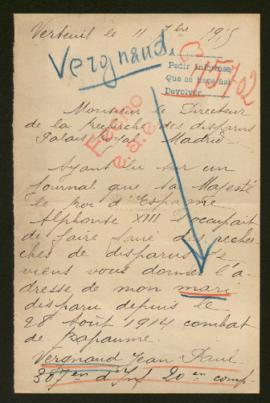 Verteuil le 11 7bre 1915
Vergnaud
A
Pedir informes
Que se haga
Devolver
35702
Monsieur le Directeur
de la recherche des disparus
Palais royal Madrid
Ayant lu sur un
journal que sa Majesté
le roi d'Espagne
Alphonse XIII s'occupait
de faire faire des recher
ches de disparus Je
viens vous donner l'a-
dresse de mon mari
disparu depuis le
28 Août 1914 combat
de Bapaume.
Vergnaud Jean
307eme d'Inf 20em comp